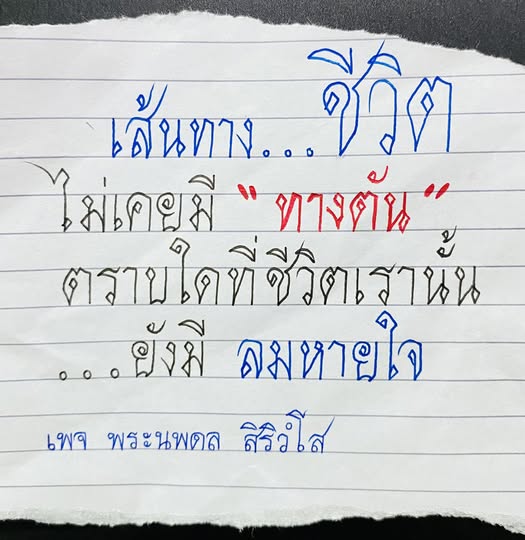 เส้นทาง...ชีวิต
ไม่เคยมี "ทางตัน"
ตราบใดที่ชีวิตเรานั้น
...ยังมี ลมหายใจ
เพจ พระนพดล สิริวํโส